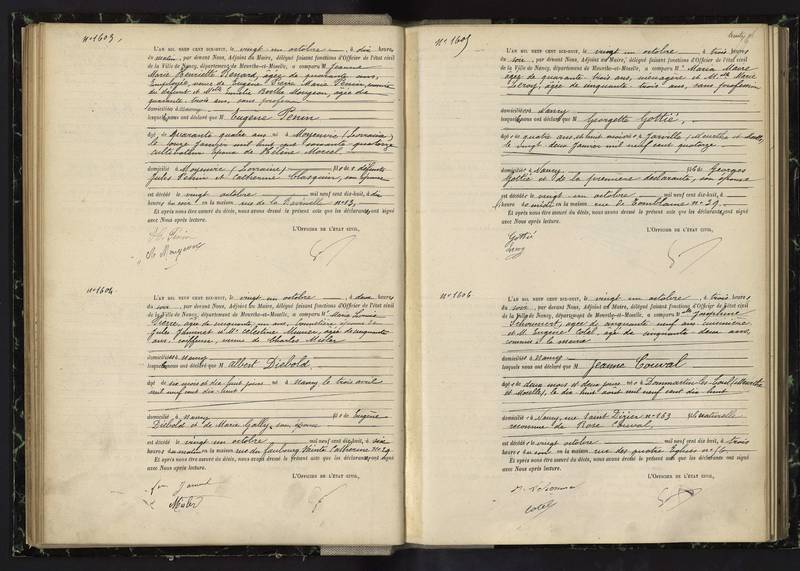 N° 1603.
L'AN MIL NEUF CENT DIX-HUIT, le vingt un octobre, à dix heures
du matin, par devant Nous, Adjoint du Maire, délégué faisant fonctions d'Officier de l'état civil
de la Ville de Nancy, département de Meurthe-et-Moselle, a comparu M Jeanne
Marie Henriette Renard, âgée de quarante ans,
Employée, veuve de Eugène Pierre Marie Penin
du défunt et Mlle Emilie Berthe Mougeon, âgée de
quarante trois ans, sans profession
domiciliés à Nancy
lesquels nous ont déclaré que M Eugène Penin
âgé de quarante quatre ans né à Moyenvic (Lorraine)
le douze janvier mil huit cent soixante quatorze
époux de Hélène Marcel
domicilié à Moyenvic (Lorraine) fils des défunts
Jules Penin et Catherine son épouse
est décédé le vingt octobre mil neuf cent dix-huit, à dix
heures du soir en la maison rue de la n° 13,
Et après nous être assuré du décès, nous avons dressé le présent acte que les déclarants ont signé
avec Nous après lecture.
L'OFFICIER DE L'ÉTAT CIVIL,
N° 1604
L'AN MIL NEUF CENT DIX-HUIT, le vingt un octobre, à deux heures
du soir, par devant Nous, Adjoint du Maire, délégué faisant fonctions d'Officier de l'état civil
de la Ville de Nancy, département de Meurthe-et-Moselle, a comparu M Marie Louise
Pierre, âgée de cinquante un ans,
Jules et Mme Célestine Meunier, âgée de cinquante
ans, coiffeuse, veuve de Charles Misler
domiciliés à Nancy
lesquels nous ont déclaré que M Albert Diebold,
âgé de dix mois et dix huit jours né à Nancy le trois avril
mil neuf cent dix-huit
domicilié à Nancy fils de Eugène
Diebold et de Marie Golly, son épouse
est décédé le vingt un octobre mil neuf cent dix-huit, à six
heures du matin en la maison rue du faubourg Sainte Catherine n° 29
Et après nous être assuré du décès, nous avons dressé le présent acte que les déclarants ont signé
avec Nous après lecture.
L'OFFICIER DE L'ÉTAT CIVIL,
Misler
N° 1605
L'AN MIL NEUF CENT DIX-HUIT, le vingt un octobre, à trois heures
du soir, par devant Nous, Adjoint du Maire, délégué faisant fonctions d'Officier de l'état civil
de la Ville de Nancy, département de Meurthe-et-Moselle, a comparu M Maria
âgée de quarante trois ans, ménagère et Mme Marie
Leroy, âgée de cinquante trois ans, sans profession
domiciliés à Nancy
lesquels nous ont déclaré que M Georgette Gottié,
âgée de quatre ans et huit mois née à Jarville (Meurthe et Moselle)
le vingt deux janvier mil neuf cent quatorze
domiciliée à Nancy fille de Georges
Gottié et de la première déclarante, son épouse
est décédée le vingt un octobre mil neuf cent dix-huit, à
heures du midi en la maison rue de Tomblaine n° 29.
Et après nous être assuré du décès, nous avons dressé le présent acte que les déclarants ont signé
avec Nous après lecture.
L'OFFICIER DE L'ÉTAT CIVIL,
Gottié
Leroy
N° 1606
L'AN MIL NEUF CENT DIX-HUIT, le vingt un octobre, à trois heures
du soir, par devant Nous, Adjoint du Maire, délégué faisant fonctions d'Officier de l'état civil
de la Ville de Nancy, département de Meurthe-et-Moselle, a comparu M Joséphine
âgée de cinquante neuf ans
et M. Eugène Cotel âgé de cinquante deux ans,
commis à la mairie
domiciliés à Nancy
lesquels nous ont déclaré que M Jeanne Couval
âgée de deux mois et deux jours née à Dommartin-les-Toul (Meurthe
et Moselle), le dix huit août mil neuf cent dix huit
domiciliée à Nancy, rue Saint Dizier n° 153 fille naturelle
reconnue de Rose Couval,
est décédée le vingt octobre mil neuf cent dix-huit, à trois
heures du soir en la maison rue des quatre Eglises n°
Et après nous être assuré du décès, nous avons dressé le présent acte que les déclarants ont signé
avec Nous après lecture.
L'OFFICIER DE L'ÉTAT CIVIL,
Cotel